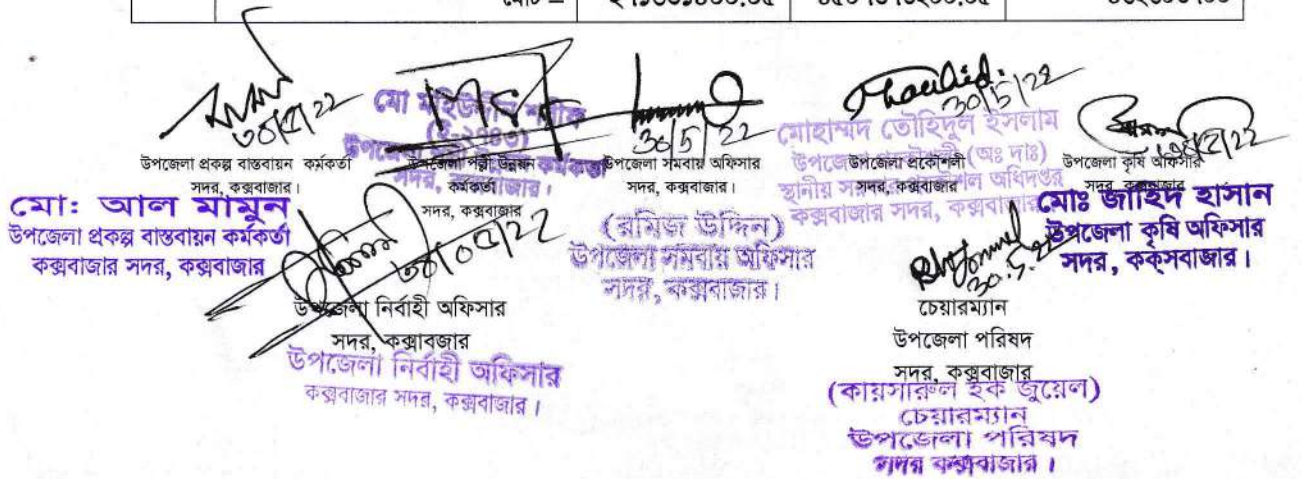 মোট =
৩০/৫/২২
উপজেলা প্রকল্প বাস্তবায়ন কর্মকর্তা
সদর, কক্সবাজার।
মো: আল মামুন
উপজেলা প্রকল্প বাস্তবায়ন কর্মকর্তা
কক্সবাজার সদর, কক্সবাজার
উপজেলা পল্লী উন্নয়ন
কর্মকর্তা
সদর, কক্সবাজার
30/5/22
উপজেলা সমবায় অফিসার
সদর, কক্সবাজার।
(রমিজ উদ্দিন)
উপজেলা সমবায় অফিসার
সদর, কক্সবাজার।
30/5/22
মোহাম্মদ তৌহিদুল ইসলাম
উপজেলা প্রকৌশলী (অঃ দাঃ)
স্থানীয় সরকার প্রকৌশল অধিদপ্তর
কক্সবাজার সদর, কক্সবাজার
উপজেলা প্রকৌশলী
সদর, কক্সবাজার
উপজেলা কৃষি অফিসার
সদর, কক্সবাজার
মোঃ জাহিদ হাসান
উপজেলা কৃষি অফিসার
সদর, কক্সবাজার।
৩০/০৫/২২
উপজেলা নির্বাহী অফিসার
সদর, কক্সাবজার
উপজেলা নির্বাহী অফিসার
কক্সবাজার সদর, কক্সবাজার।
30.5.22
চেয়ারম্যান
উপজেলা পরিষদ
সদর, কক্সবাজার
(কায়সারুল হক জুয়েল)
চেয়ারম্যান
উপজেলা পরিষদ
সদর কক্সবাজার।